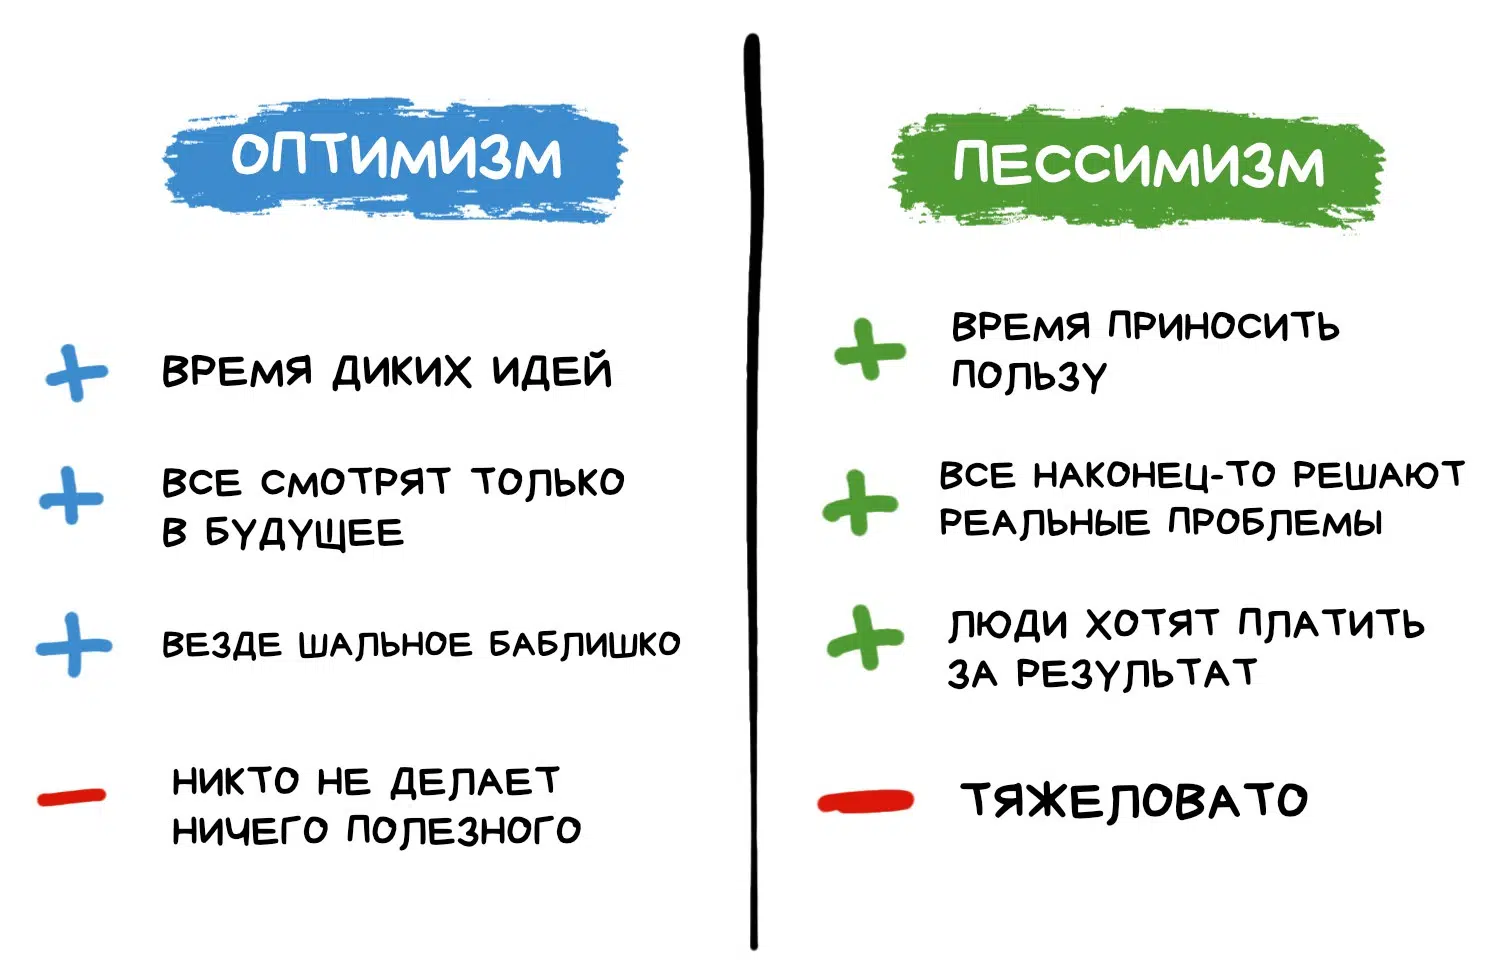 ОПТИМИЗМ
ВРЕМЯ ДИКИХ ИДЕЙ
ВСЕ СМОТРЯТ ТОЛЬКО
В БУДУЩЕЕ
ВЕЗДЕ ШАЛЬНОЕ БАБЛИШКО
НИКТО НЕ ДЕЛАЕТ
НИЧЕГО ПОЛЕЗНОГО
ПЕССИМИЗМ
ВРЕМЯ ПРИНОСИТЬ
ПОЛЬЗУ
ВСЕ НАКОНЕЦ-ТО РЕШАЮТ
РЕАЛЬНЫЕ ПРОБЛЕМЫ
ЛЮДИ ХОТЯТ ПЛАТИТЬ
ЗА РЕЗУЛЬТАТ
ТЯЖЕЛОВАТО